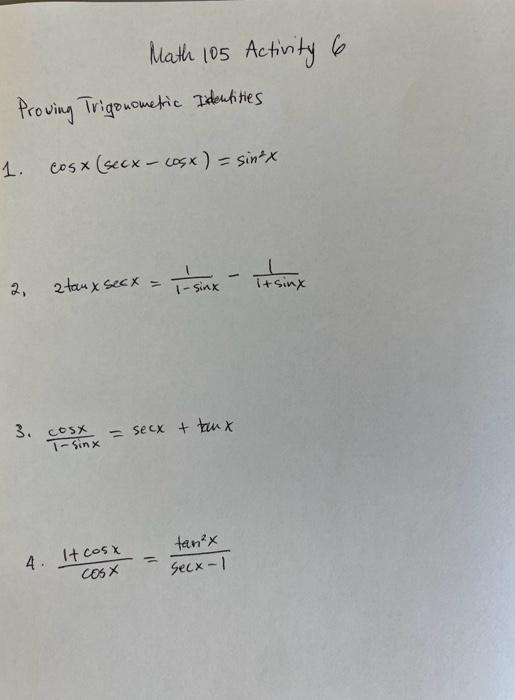 Math 105 Activity 6
Proving Trigonometric Identities
1. cosx(secx - cosx) = sin²x
2, 2tanx secx = 1/(1-sinx) - 1/(1+sinx)
3. cosx/(1-sinx) = secx + tanx
4. (1+cosx)/cosx = tan²x/(secx-1)